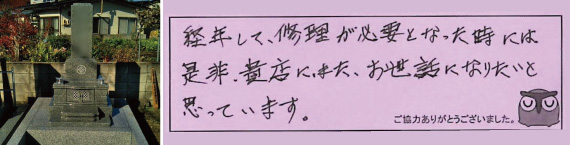 経年して、修理が必要となった時には
是非、貴店に、また、お世話になりたいと
思っています。
ご協力ありがとうございました。